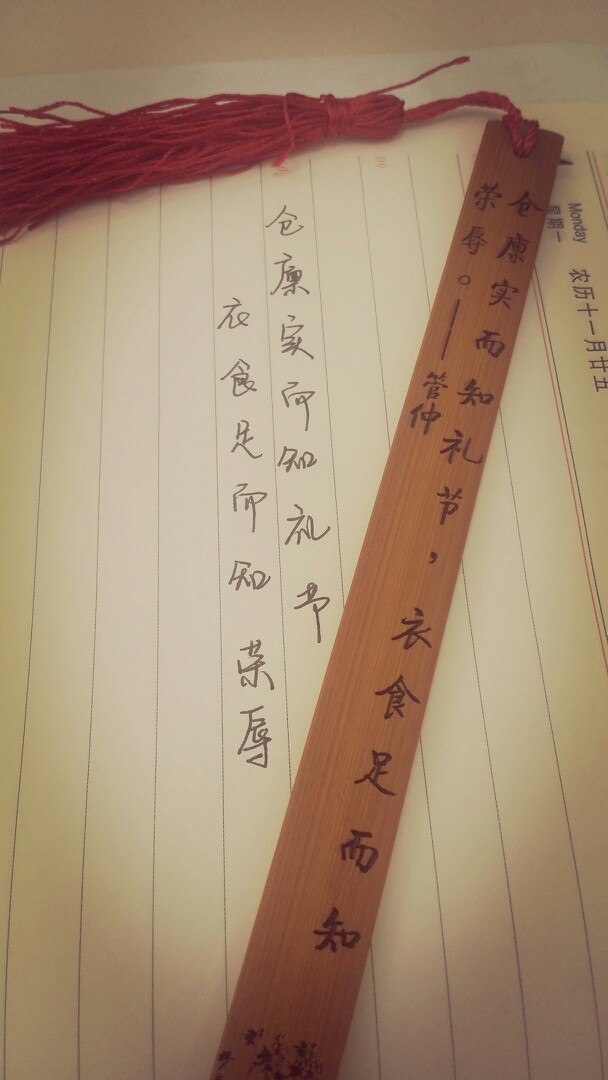 仓廪实而知礼节，衣食足而知
荣辱。——管仲
仓廪实而知礼节
衣食足而知荣辱
Monday
星期一
农历十一月廿五